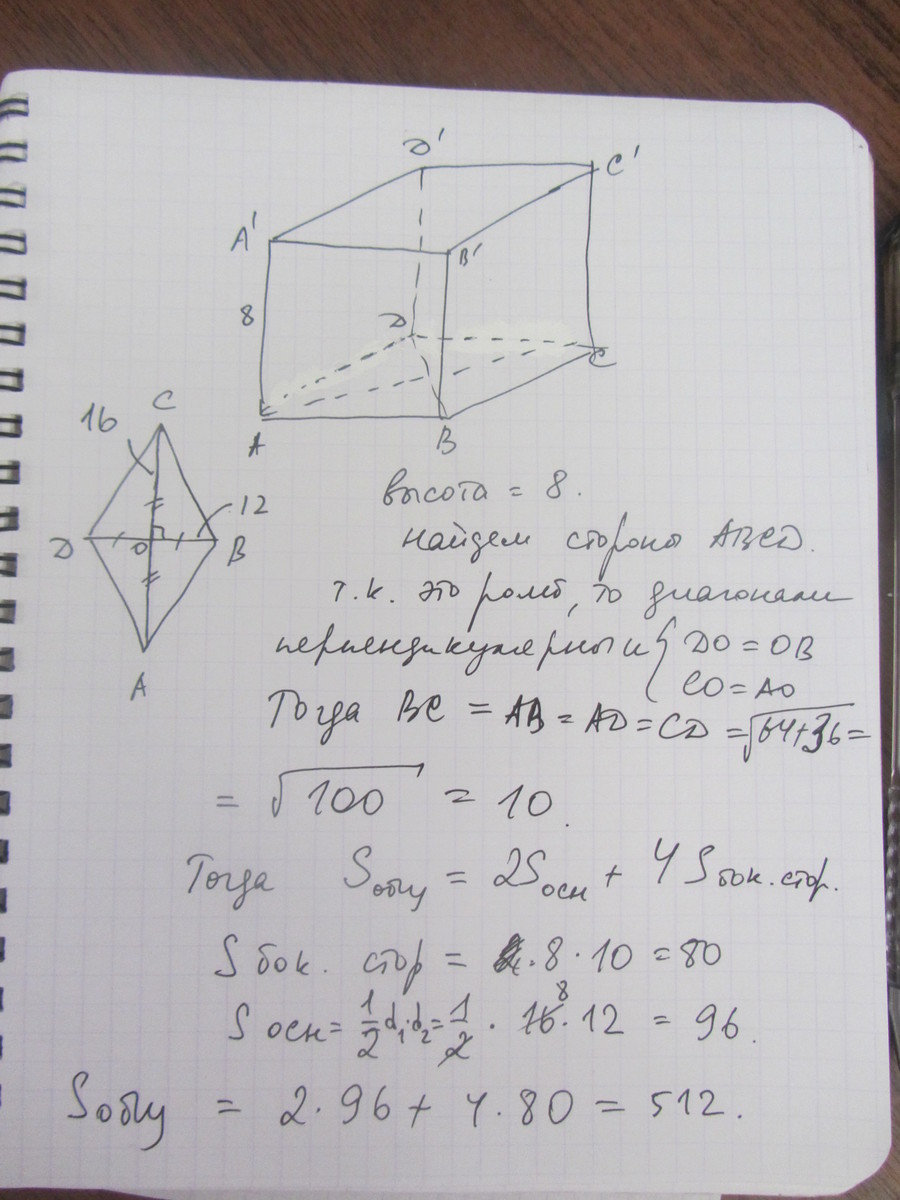 D'
C'
A'
B'
8
D
C
A
B
C
16
12
D
O
B
A
высота = 8.
найдем стороны ABCD.
т.к. это ромб, то диагонали
перпендикулярны и { DO = OB
CO = AO
Тогда BC = AB = AD = CD = √64+36 =
= √100 = 10.
Тогда Sобщ = 2Sосн + 4 Sбок. стор.
S бок. стор = 8 · 10 = 80
S осн = 1/2 d₁·d₂ = 1/2 · 16 8 · 12 = 96.
Sобщ = 2·96 + 4·80 = 512.